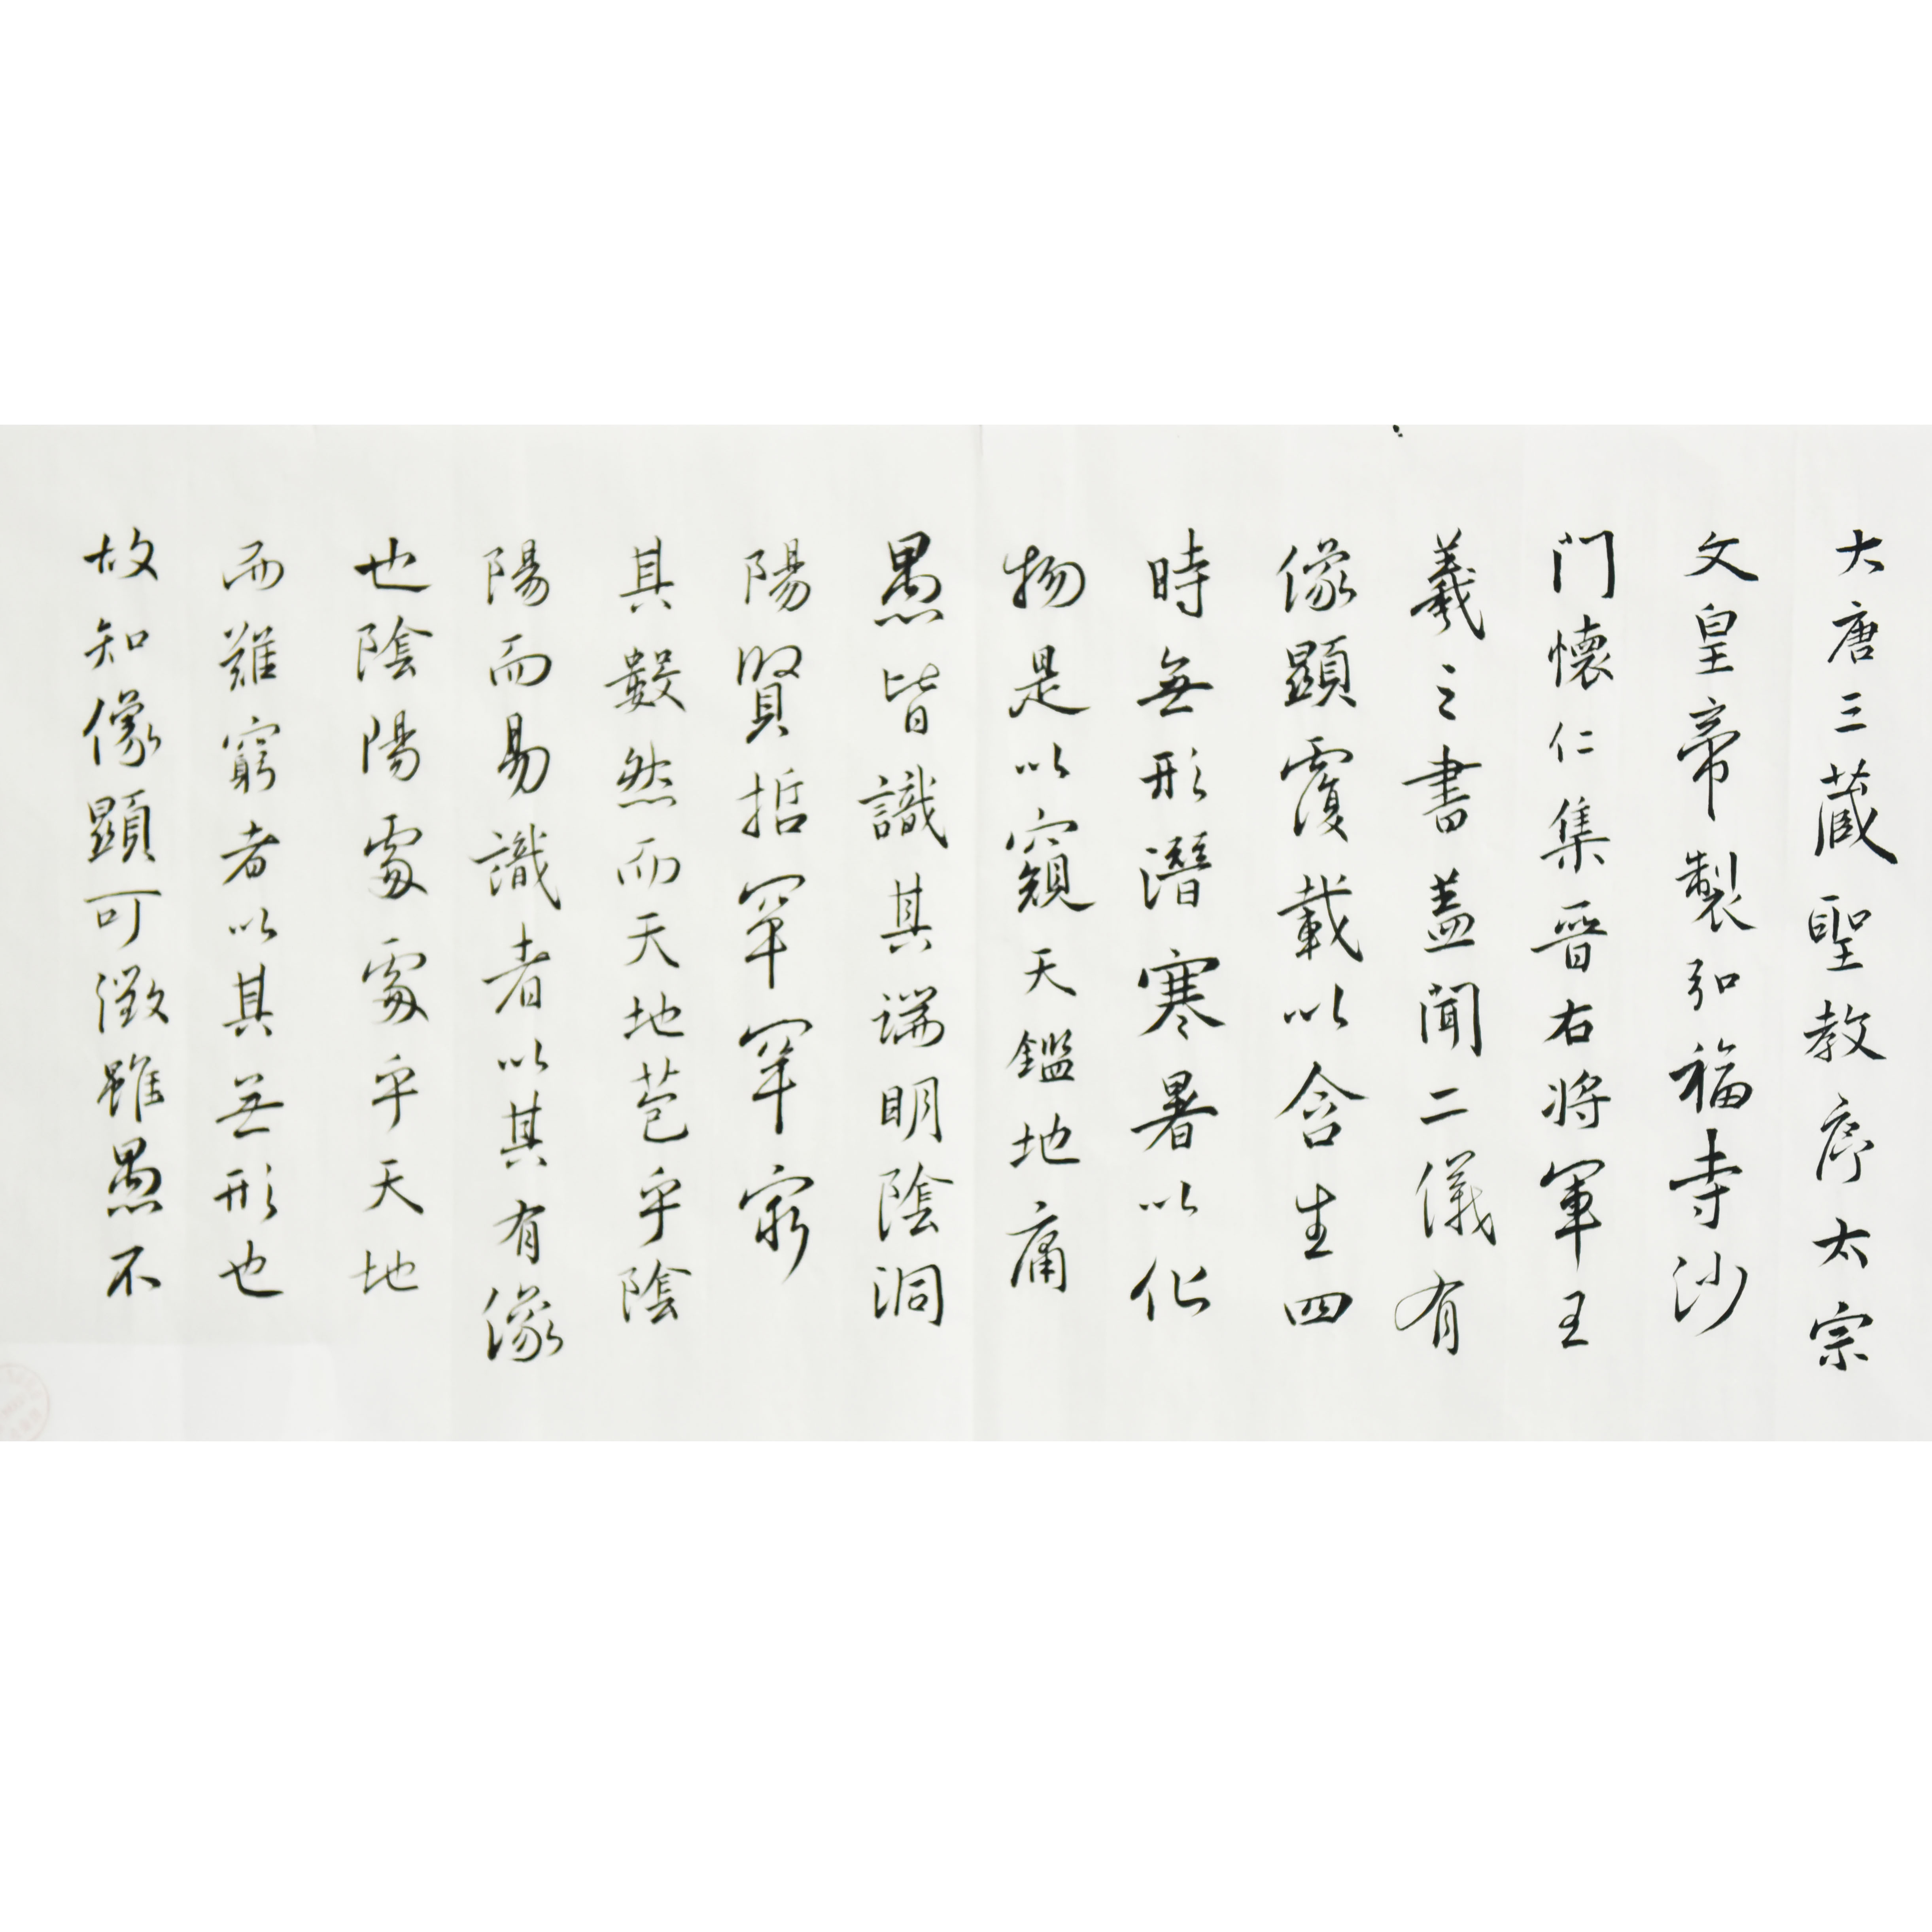 大唐三藏聖教序太宗
文皇帝製弘福寺沙
门懷仁集晋右将軍王
羲之書盖聞二儀有
像顯覆載以含生四
時無形潛寒暑以化
物是以窺天鑑地庸
愚皆識其端明陰洞
陽賢哲罕罕窮
其數然而天地苞乎陰
陽而易識者以其有像
也陰陽處處乎天地
而難窮者以其無形也
故知像顯可徵雖愚不